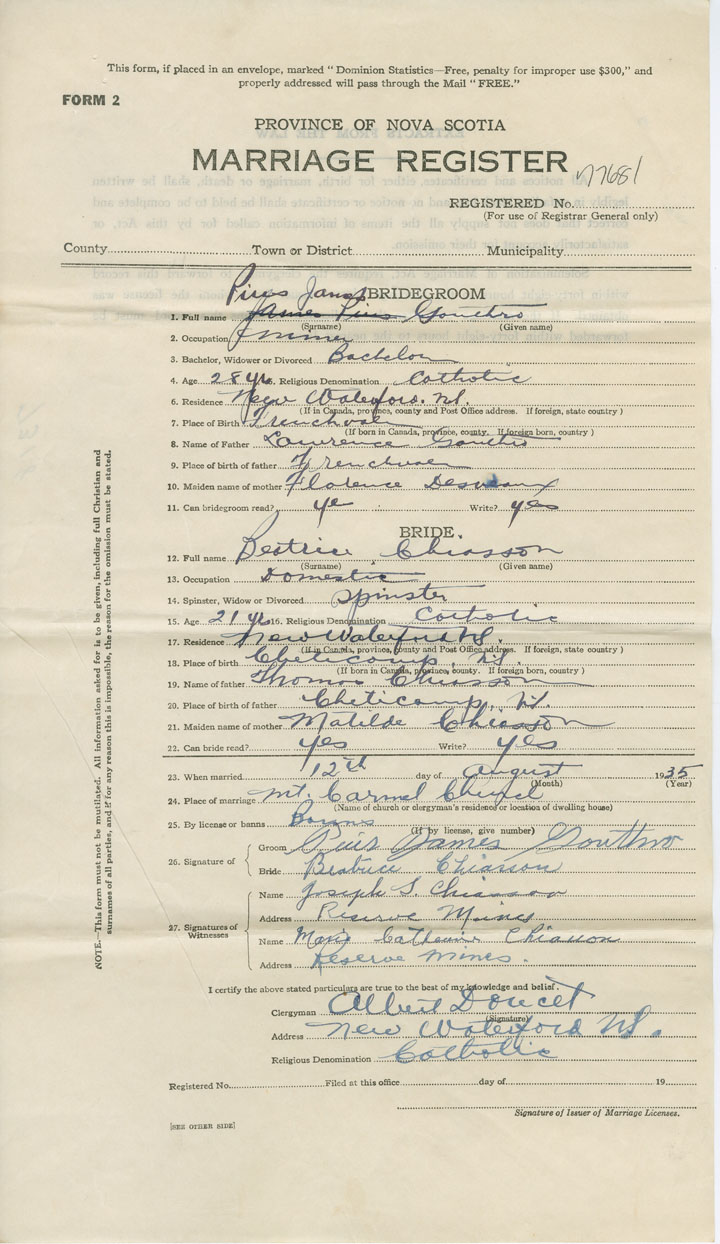 This form, if placed in an envelope, marked "Dominion Statistics—Free, penalty for improper use $300," and
properly addressed will pass through the Mail "FREE."
FORM 2
PROVINCE OF NOVA SCOTIA
MARRIAGE REGISTER
REGISTERED No.
(For use of Registrar General only)
County Town or District Municipality
Pius James BRIDEGROOM
1. Full name James Pius Gouthro
(Surname) (Given name)
2. Occupation miner
3. Bachelor, Widower or Divorced Bachelor
4. Age 28 yrs. Religious Denomination Catholic
6. Residence New Waterford. N.S.
(If in Canada, province, county and Post Office address. If foreign, state country )
7. Place of Birth Frenchvale
(If born in Canada, province, county. If foreign born, country )
8. Name of Father Lawrence Gouthro
9. Place of birth of father Frenchvale
10. Maiden name of mother Florence Desveaux
11. Can bridegroom read? ye Write? yes
BRIDE.
12. Full name Beatrice Chiasson
(Surname) (Given name)
13. Occupation Domestic
14. Spinster, Widow or Divorced Spinster
15. Age 21 yrs 16. Religious Denomination Catholic
17. Residence New Waterford N.S.
(If in Canada, province, county and Post Office address. If foreign, state country )
18. Place of birth Cheticamp, N.S.
(If born in Canada, province, county. If foreign born, country )
19. Name of father Thomas Chiasson
20. Place of birth of father Cheticamp, N.S.
21. Maiden name of mother Matilde Chiasson
22. Can bride read? yes Write? yes
23. When married 12th day of August 1935
(Month) (Year)
24. Place of marriage Mt. Carmel Church
(Name of church or clergyman's residence or location of dwelling house)
25. By license or banns Banns
(If by license, give number)
26. Signature of
Groom Pius James Gouthro
Bride Beatrice Chiasson
27. Signatures of Witnesses
Name Joseph S. Chiasson
Address Reserve Mines
Name Mary Catherine Chiasson
Address Reserve Mines.
I certify the above stated particulars are true to the best of my knowledge and belief.
Clergyman Albert Doucet
(Signature)
Address New Waterford N.S.
Religious Denomination Catholic
Registered No. Filed at this office day of 19
Signature of Issuer of Marriage Licenses.
[SEE OTHER SIDE]
NOTE.—This form must not be mutilated. All information asked for is to be given, including full Christian and
surnames of all parties, and if for any reason this is impossible, the reason for the omission must be stated.